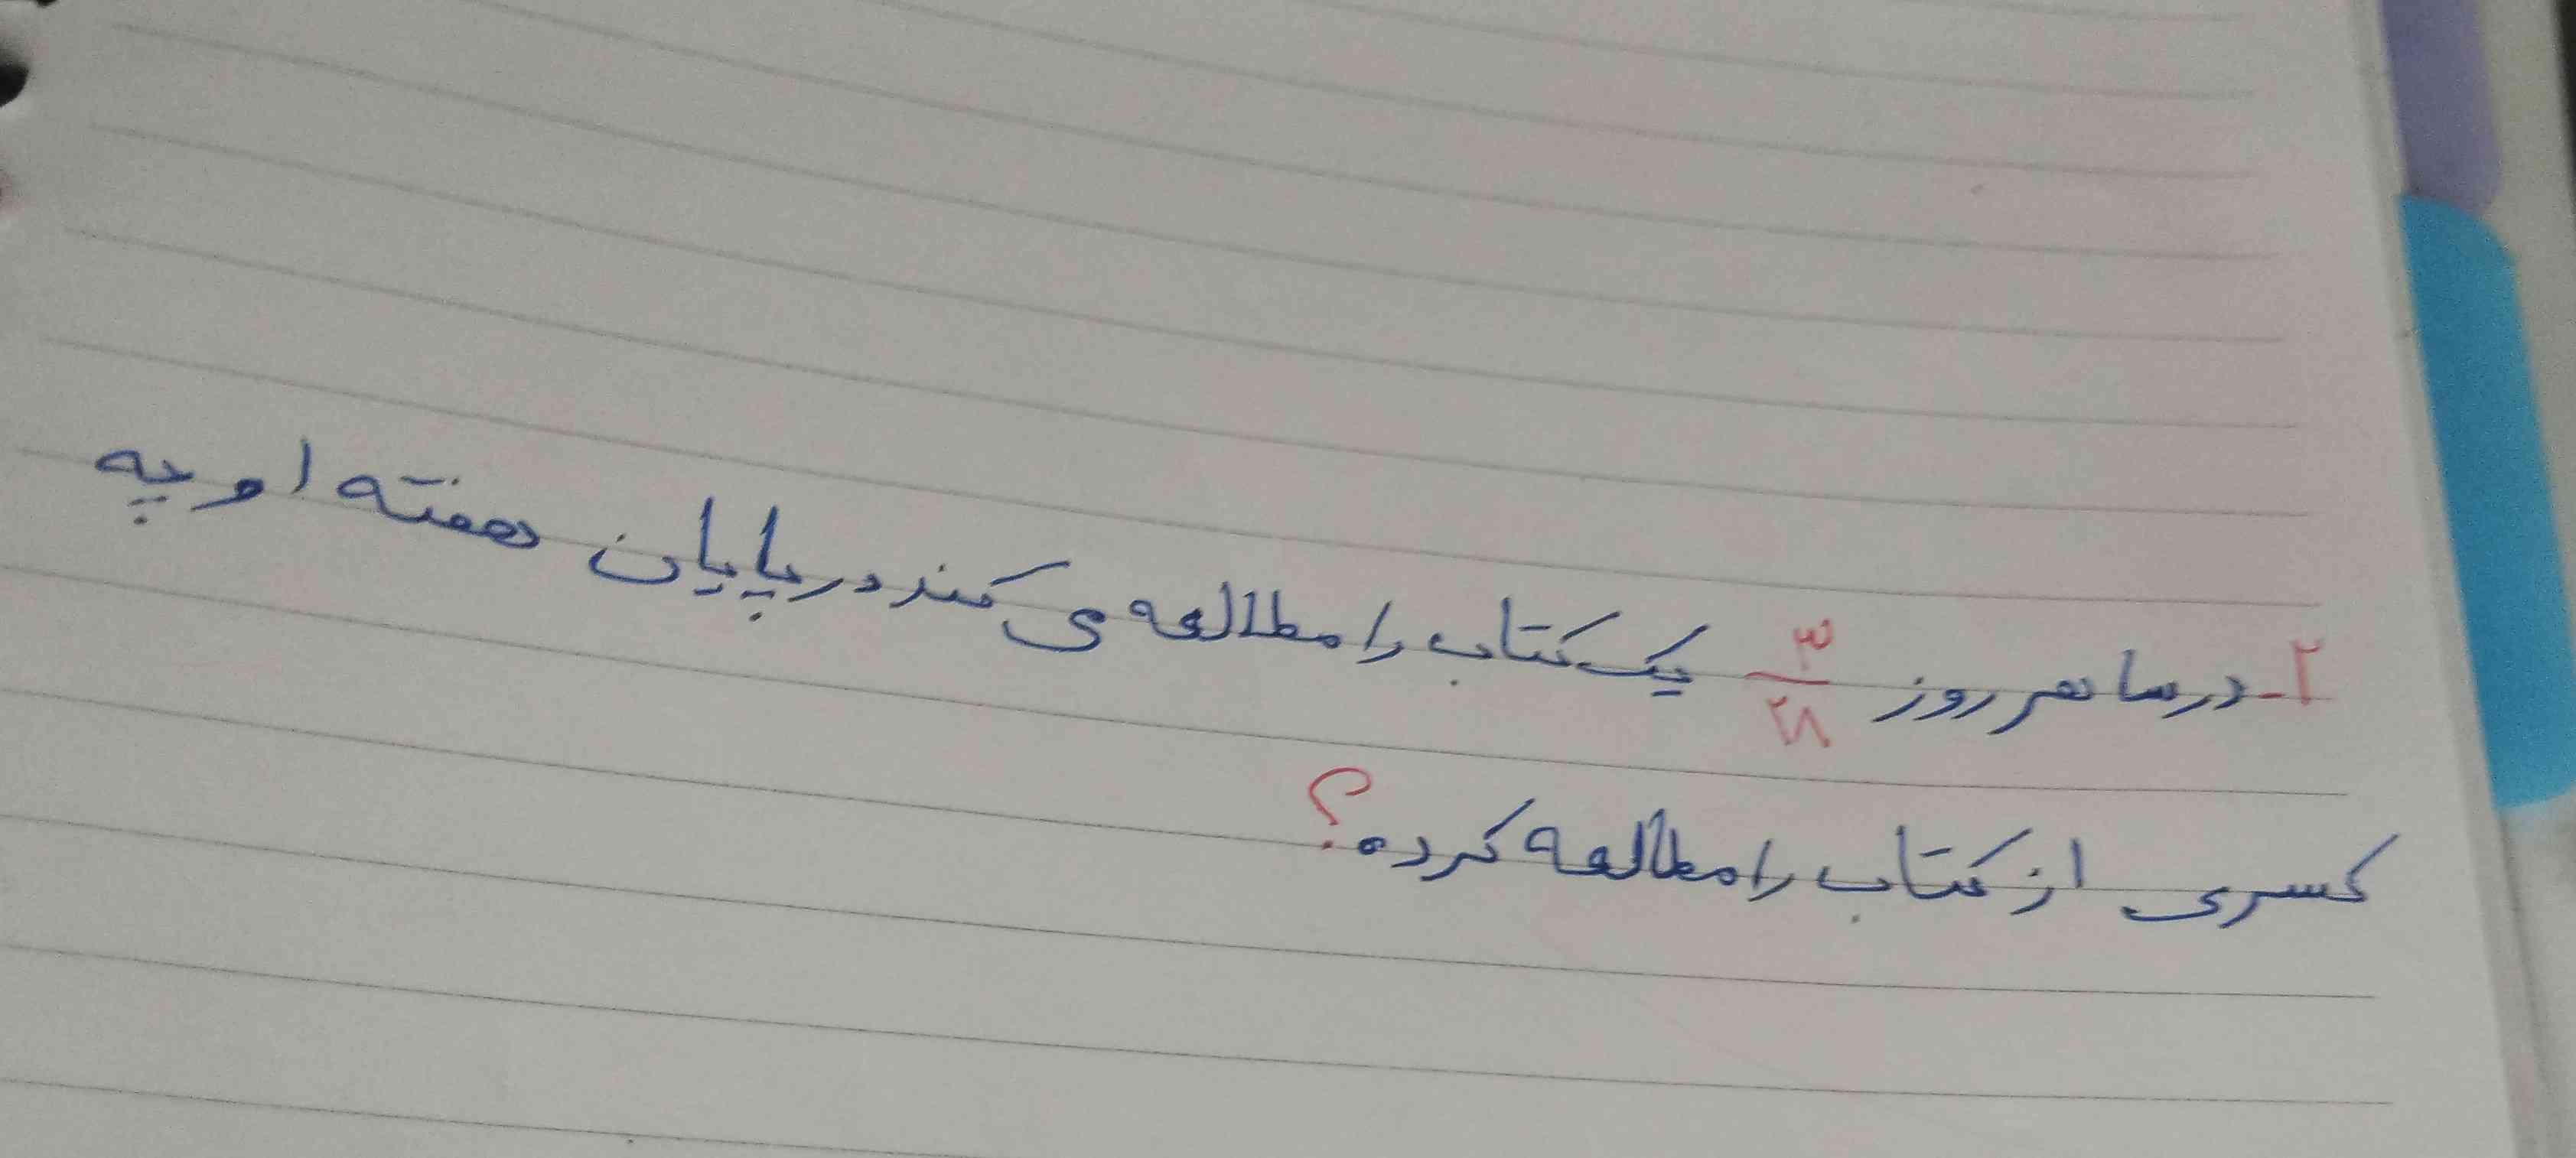 ۲- درسا هر روز ۳/۲۸ یک کتاب را مطالعه می کند در پایان هفته او چه
کسری از کتاب را مطالعه کرده؟